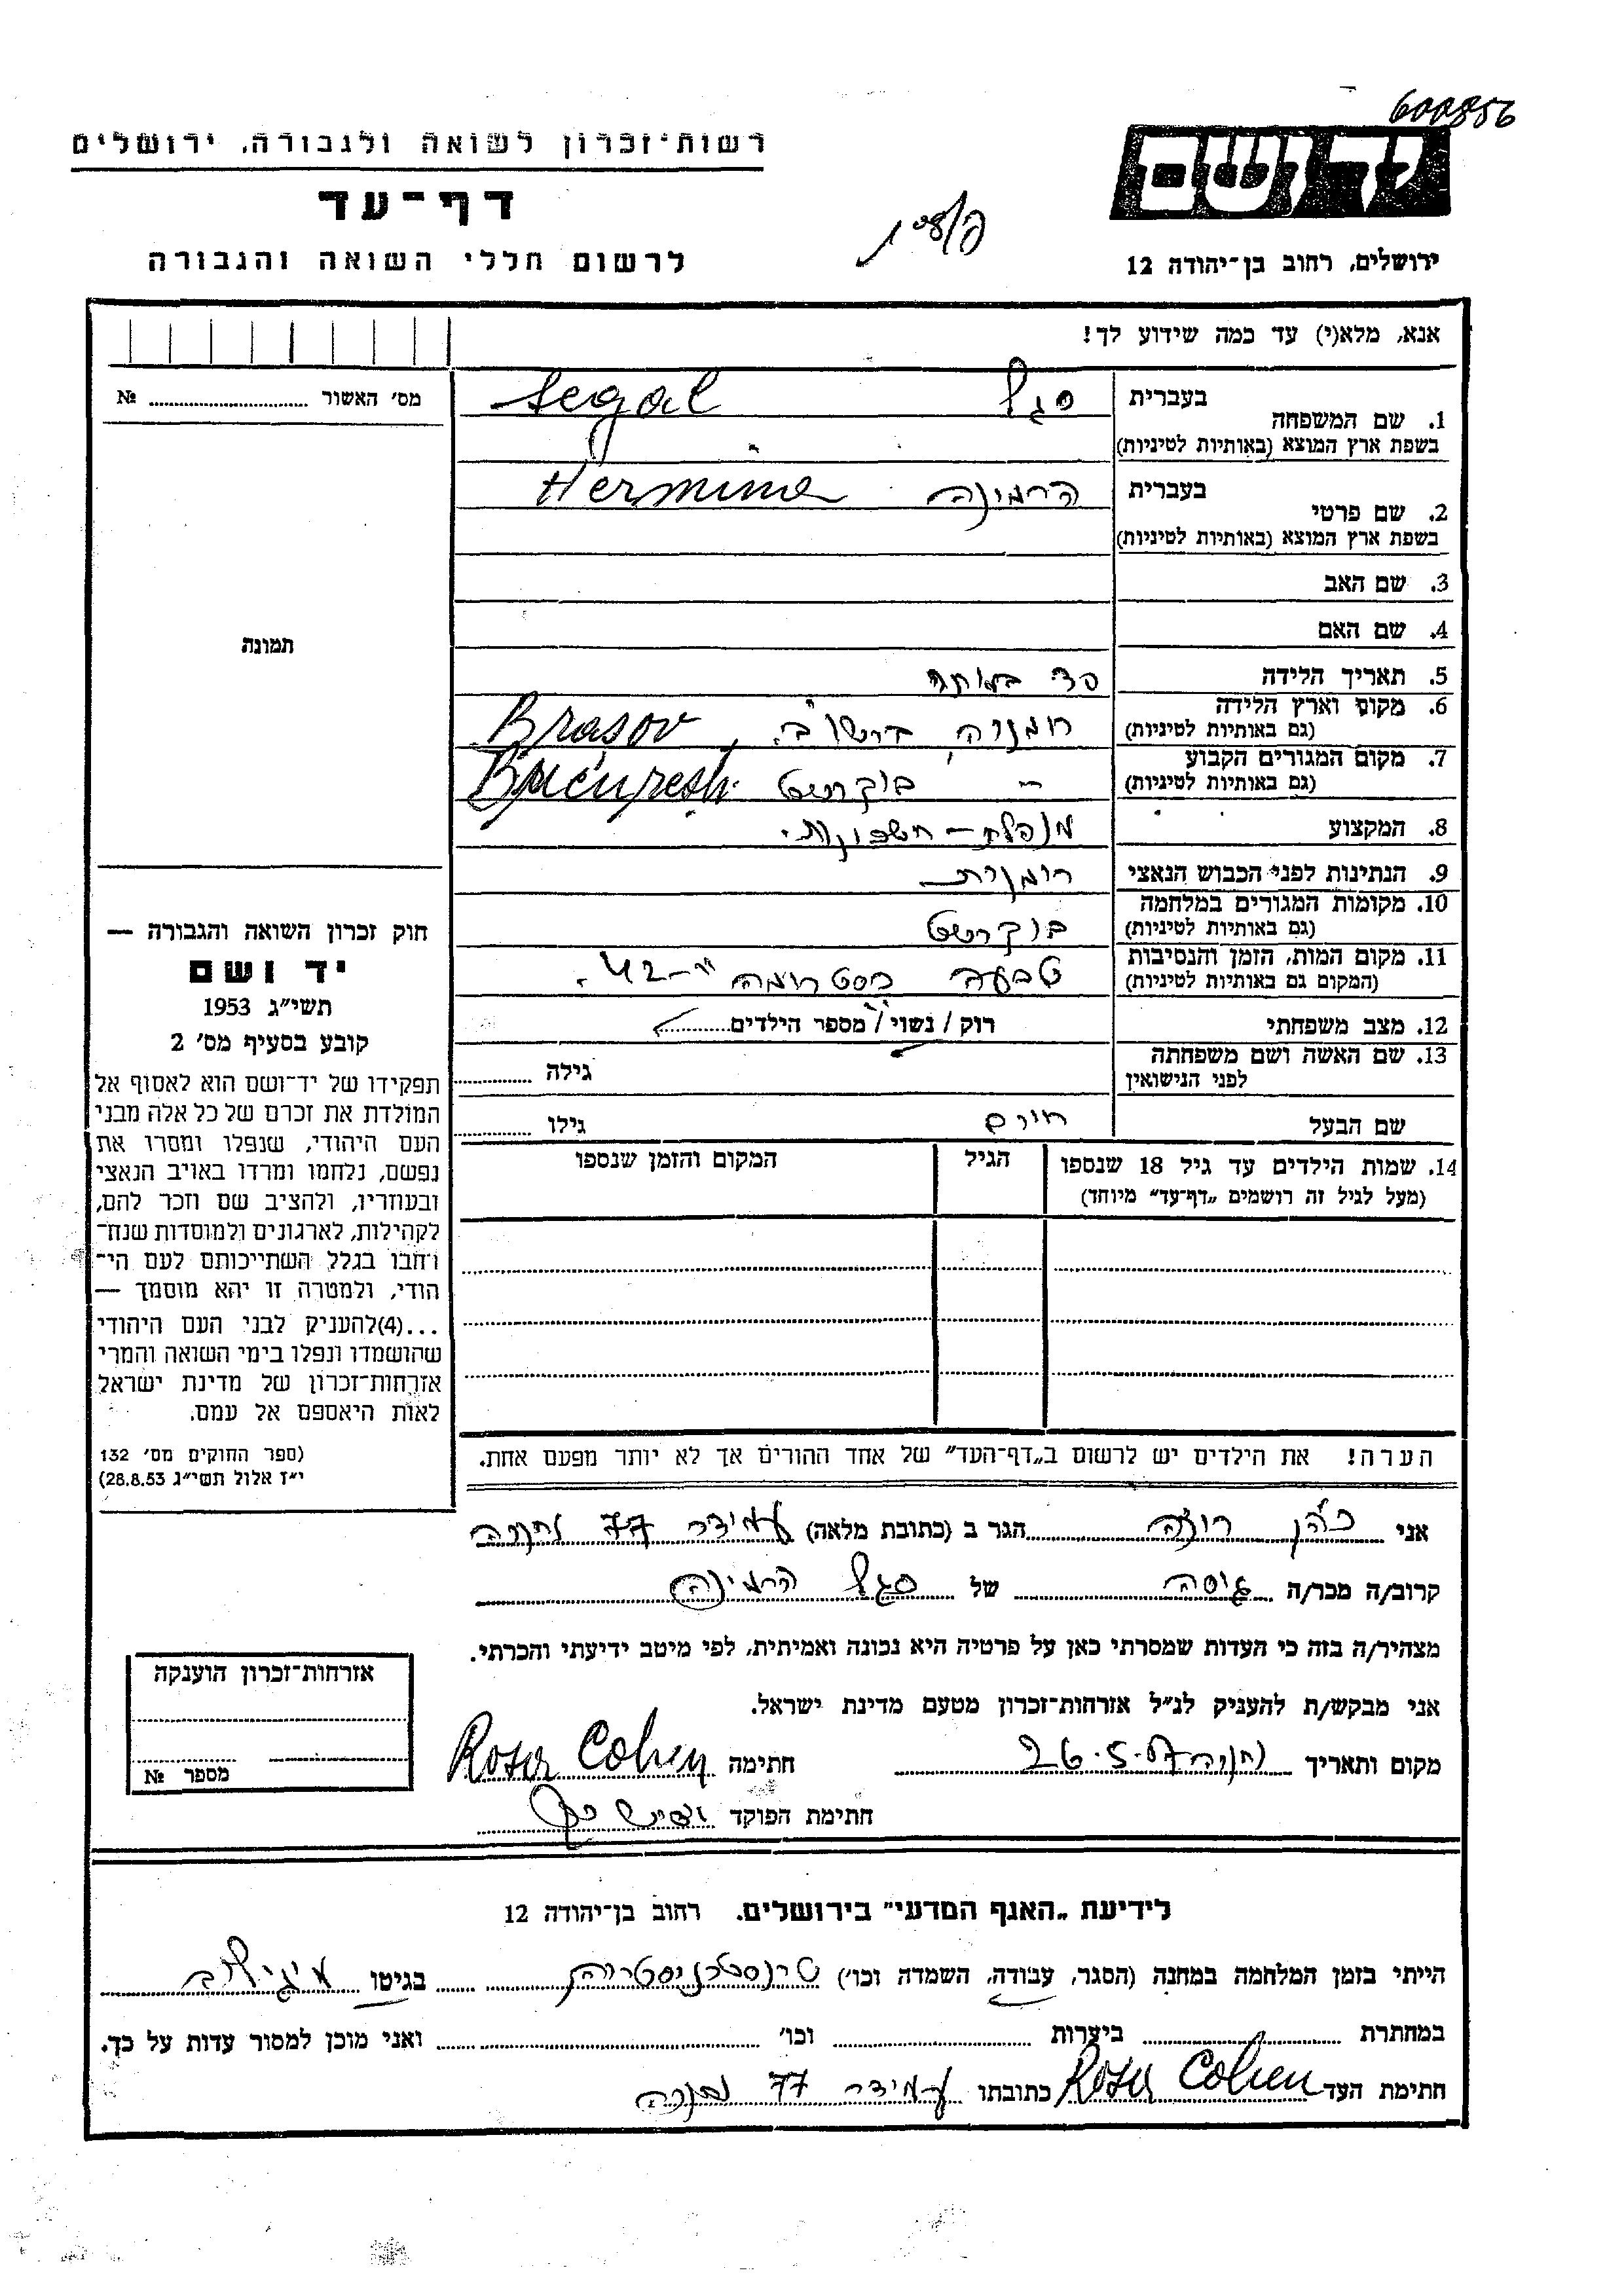 600856
ידושם
רשות־זכרון לשואה ולגבורה, ירושלים
דף־עד
לרשום חללי השואה והגבורה
ירושלים, רחוב בן־יהודה 12
אנא, מלא(י) עד כמה שידוע לך!
מס׳ האשור № 
1. שם המשפחה בעברית סגל Segal
בשפת ארץ המוצא (באותיות לטיניות)
2. שם פרטי בעברית הרמינה Hermina
בשפת ארץ המוצא (באותיות לטיניות)
3. שם האב
4. שם האם
תמונה
5. תאריך הלידה
6. מקום וארץ הלידה רומניה, ברשוב, Brasov
(גם באותיות לטיניות)
7. מקום המגורים הקבוע — בוקרשט Bucuresti
(גם באותיות לטיניות)
8. המקצוע מנהלת-חשבונות.
9. הנתינות לפני הכבוש הנאצי רומנית
10. מקומות המגורים במלחמה בוקרשט
(גם באותיות לטיניות)
11. מקום המות, הזמן והנסיבות טבעה בסטרומה ב-42.
(המקום גם באותיות לטיניות)
12. מצב משפחתי רוק / נשוי / מספר הילדים
13. שם האשה ושם משפחתה גילה
לפני הנישואין
שם הבעל חיים גילו
14. שמות הילדים עד גיל 18 שנספו הגיל המקום והזמן שנספו
(מעל לגיל זה רושמים „דף־עד״ מיוחד)
חוק זכרון השואה והגבורה —
יד ושם
תשי״ג 1953
קובע בסעיף מס׳ 2
תפקידו של יד־ושם הוא לאסוף אל
המולדת את זכרם של כל אלה מבני
העם היהודי, שנפלו ומסרו את
נפשם, נלחמו ומרדו באויב הנאצי
ובעוזריו, ולהציב שם וזכר להם,
לקהילות, לארגונים ולמוסדות שנח־
רחבו בגלל השתייכותם לעם הי־
הודי, ולמטרה זו יהא מוסמך —
...(4)להעניק לבני העם היהודי
שהושמדו ונפלו בימי השואה והמרי
אזרחות־זכרון של מדינת ישראל
לאות היאספם אל עמם.
(ספר החוקים מס׳ 132
י״ז אלול תשי״ג 28.8.53)
הערה! את הילדים יש לרשום ב„דף־העד״ של אחד ההורים אך לא יותר מפעם אחת.
אני כהן רוזה הגר ב (כתובת מלאה) עמידר 77 נתניה
קרוב/ה מכר/ה גיסה של סגל הרמינה
מצהיר/ה בזה כי העדות שמסרתי כאן על פרטיה היא נכונה ואמיתית, לפי מיטב ידיעתי והכרתי.
אני מבקש/ת להעניק לנ״ל אזרחות־זכרון מטעם מדינת ישראל.
מקום ותאריך נתניה 26.5.57 חתימה Rosa Cohen
חתימת הפוקד
אזרחות־זכרון הוענקה
מספר №
לידיעת „האגף המדעי״ בירושלים. רחוב בן־יהודה 12
הייתי בזמן המלחמה במחנה (הסגר, עבודה, השמדה וכו׳) טרנסניסטריה בגיטו מוגילוב
במחתרת ביערות וכו׳ ואני מוכן למסור עדות על כך.
חתימת העד Rosa Cohen כתובתו עמידר 77 נתניה